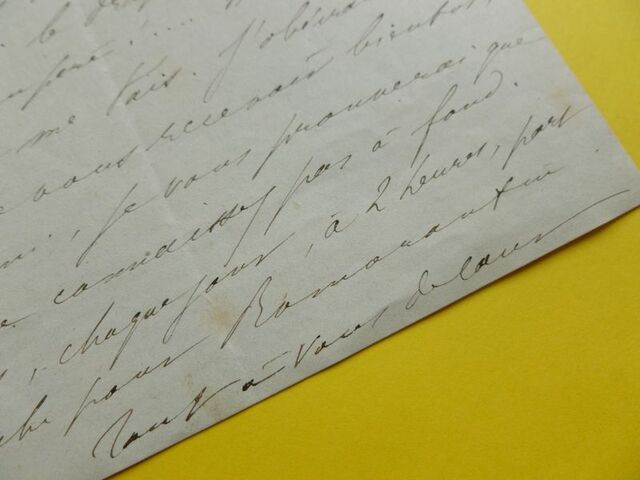 le
me tais. J'obéirai
vous recevoir bientôt,
je vous prouverai que
connaissez pas à fond.
, chaque jour, à 2 heures, part
pour Romorantin
Tout à vous de cœur